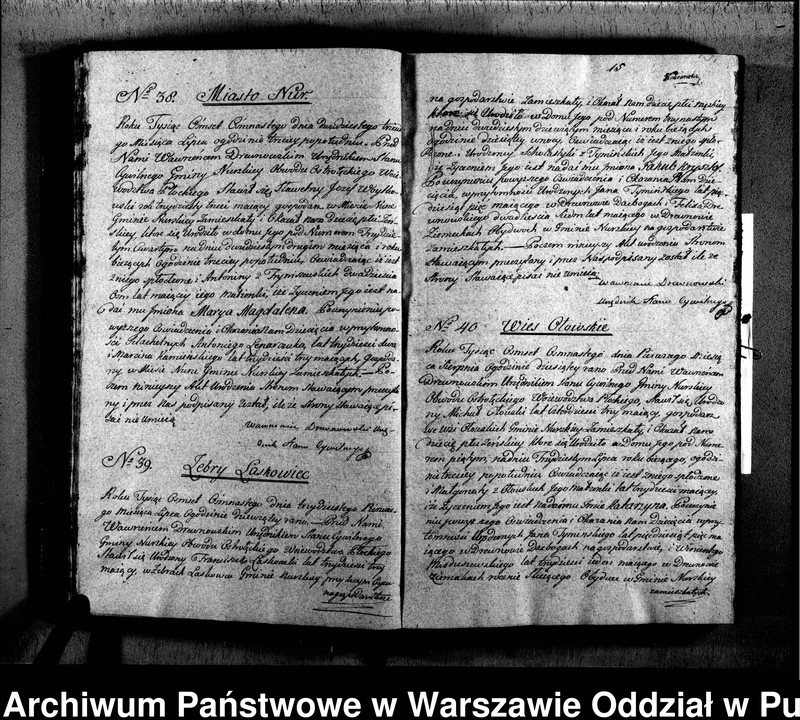 Nº 38. Miasto Nur.
Roku Tysiąc Ośmset Osmnastego dnia dwudziestego
go Miesiąca Lipca o godzinie trzeciey popołudniu, Przed
Nami Wawrzeńcem Drewnowskim Urzędnikiem Stanu
Cywilnego Gminy Nurskiey Obwodu Ostrołęckiego Woie-
wodztwa Płockiego Stawił się Sławetny Józef
lat trzydzieści trzy maiący gospodarz w Mieście Nurze
Gminie Nurskiey Zamieszkały i Okazał nam Dziecię płci żeń-
skiey które się Urodziło w domu jego pod Numerem Trzydzie-
stym Czwartym na dniu dwudziestym drugim miesiąca i roku
bieżących o godzinie trzeciey popołudniu, Oświadczaiąc iż iest
z niego spłodzone i Antoniny z dwadzieścia
ośm lat maiącey iego małżonki, iż życzeniem jego iest na-
dać mu Imiona Marya Magdalena. Po uczynieniu po-
wyższego Oświadczenia i Okazaniu nam Dziecięcia w przytomno-
ści Szlachetnych Antoniego lat trzydzieści dwa
i Marcina Kamińskiego lat trzydzieści trzy maiących gospoda-
rzy w Mieście Nurze Gminie Nurskiey Zamieszkałych. — Po-
czem ninieyszy Akt Urodzenia Stronom Stawaiącym przeczyta-
ny i przez Nas podpisany został, ile że Strony Stawaiące pi-
sać nie umieią
Wawrzeniec Drewnowski Urzę-
dnik Stanu Cywilnego
Nº 39. Żebry Laskowiec
Roku Tysiąc Ośmset Osmnastego dnia trzydziestego Pierwsze-
go miesiąca Lipca o godzinie dziewiątey rano, — Przed Nami
Wawrzeńcem Drewnowskim Urzędnikiem Stanu Cywilnego
Gminy Nurskiey Obwodu Ostrołęckiego Woiewodztwa Płockiego
Stawił się Urodzony Franciszek Laskowski lat trzydzieści trzy
maiący, w Żebrach Laskowcu Gminie Nurskiey przy swym Oycu
na gospodarstwie
15
na gospodarstwie Zamieszkały, i Okazał nam dziecię płci męskiey
które się Urodziło w Domu jego pod Numerem trzynastym
na dniu dwudziestym dziewiątym miesiąca i roku bieżących
o godzinie dziesiątey wnocy, Oświadczaiąc iż iest z niego spło-
dzone i Urodzoney Scholastyki z Tymińskich jego Małżonki,
iż życzeniem jego iest nadać mu Imiona Jakub
Po uczynieniu powyższego Oświadczenia i Okazania Nam Dzie-
cięcia, w przytomności Urodzonych Jana Tymińskiego lat pię-
dziesiąt pięć maiącego w Drewnowie Dadbogach i Felixa Dre-
wnowskiego dwadzieścia siedm lat maiącego w Drewnowie
Ziemakach Obydwóch w Gminie Nurskiey na gospodarstwie
Zamieszkałych. — Poczem ninieyszy Akt urodzenia Stronom
Stawaiącym przeczytany i przez Nas podpisany został ile że
Strony Stawaiące pisać nie umieią
Wawrzeniec Drewnowski
Urzędnik Stanu Cywilnego
Nº 40 Wieś Ołowskie
Roku Tysiąc Ośmset Osmnastego dnia Pierwszego Miesią-
ca Sierpnia o godzinie dziewiątey rano Przed Nami Wawrzeńcem
Drewnowskim Urzędnikiem Stanu Cywilnego Gminy Nurskiey
Obwodu Ostrołęckiego Woiewodztwa Płockiego, Stawił się Urodzo-
ny Michał Ołowski lat trzy maiący, gospodarz
we wsi Ołowskich Gminie Nurskiey Zamieszkały i Okazał nam
dziecię płci żeńskiey które się Urodziło w Domu jego pod Nume-
rem piątym, na dniu Trzydziestym Lipca roku bieżącego, o godzi-
nie trzeciey popołudniu Oświadczaiąc iż iest z niego spłodzone
i Małgorzaty z Ołowskich jego małżonki lat trzydzieści maiącey,
iż życzeniem jego iest nadać mu Imie Katarzyna. Po uczynie-
niu powyższego Oświadczenia i Okazania nam Dziecięcia w przy-
tomności Urodzonych Jana Tymińskiego lat pięćdziesiąt pięć ma-
iącego w Drewnowie Dadbogach na gospodarstwie, i Wincentego
lat trzydzieści ieden maiącego w Drewnowie
Ziemakach Obydwóch w Gminie Nurskiey
zamieszkałych.
Archiwum Państwowe w Warszawie Oddział w Pu